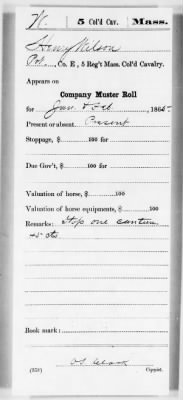 W. 5 Col'd Cav. Mass.
Henry Wilson
Pvt., Co. E, 5 Reg't Mass. Col'd Cavalry.
Appears on
Company Muster Roll
for Jan. & Feb, 1865.
Present or absent. Present
Stoppage, $ 100 for
Due Gov't, $ 100 for
Valuation of horse, $ 100
Valuation of horse equipments, $ 100
Remarks: Stop one canteen
45 cts.
Book mark:
(358) Copyist.